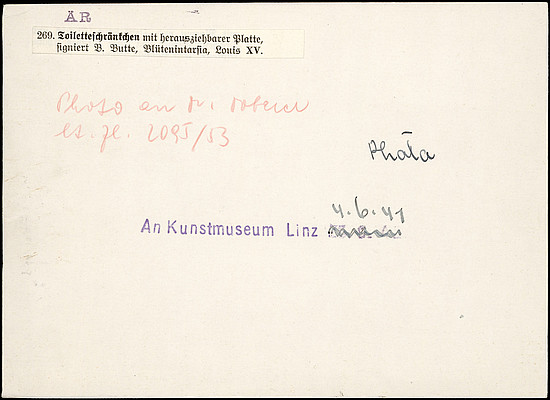 ÄR
269. Toiletteschränkchen mit herausziehbarer Platte,
signiert B. Butte, Blütenintarsia, Louis XV.
Photo an Dr.
lt. Zl. 2095/53
Photo
4.6.41
An Kunstmuseum Linz